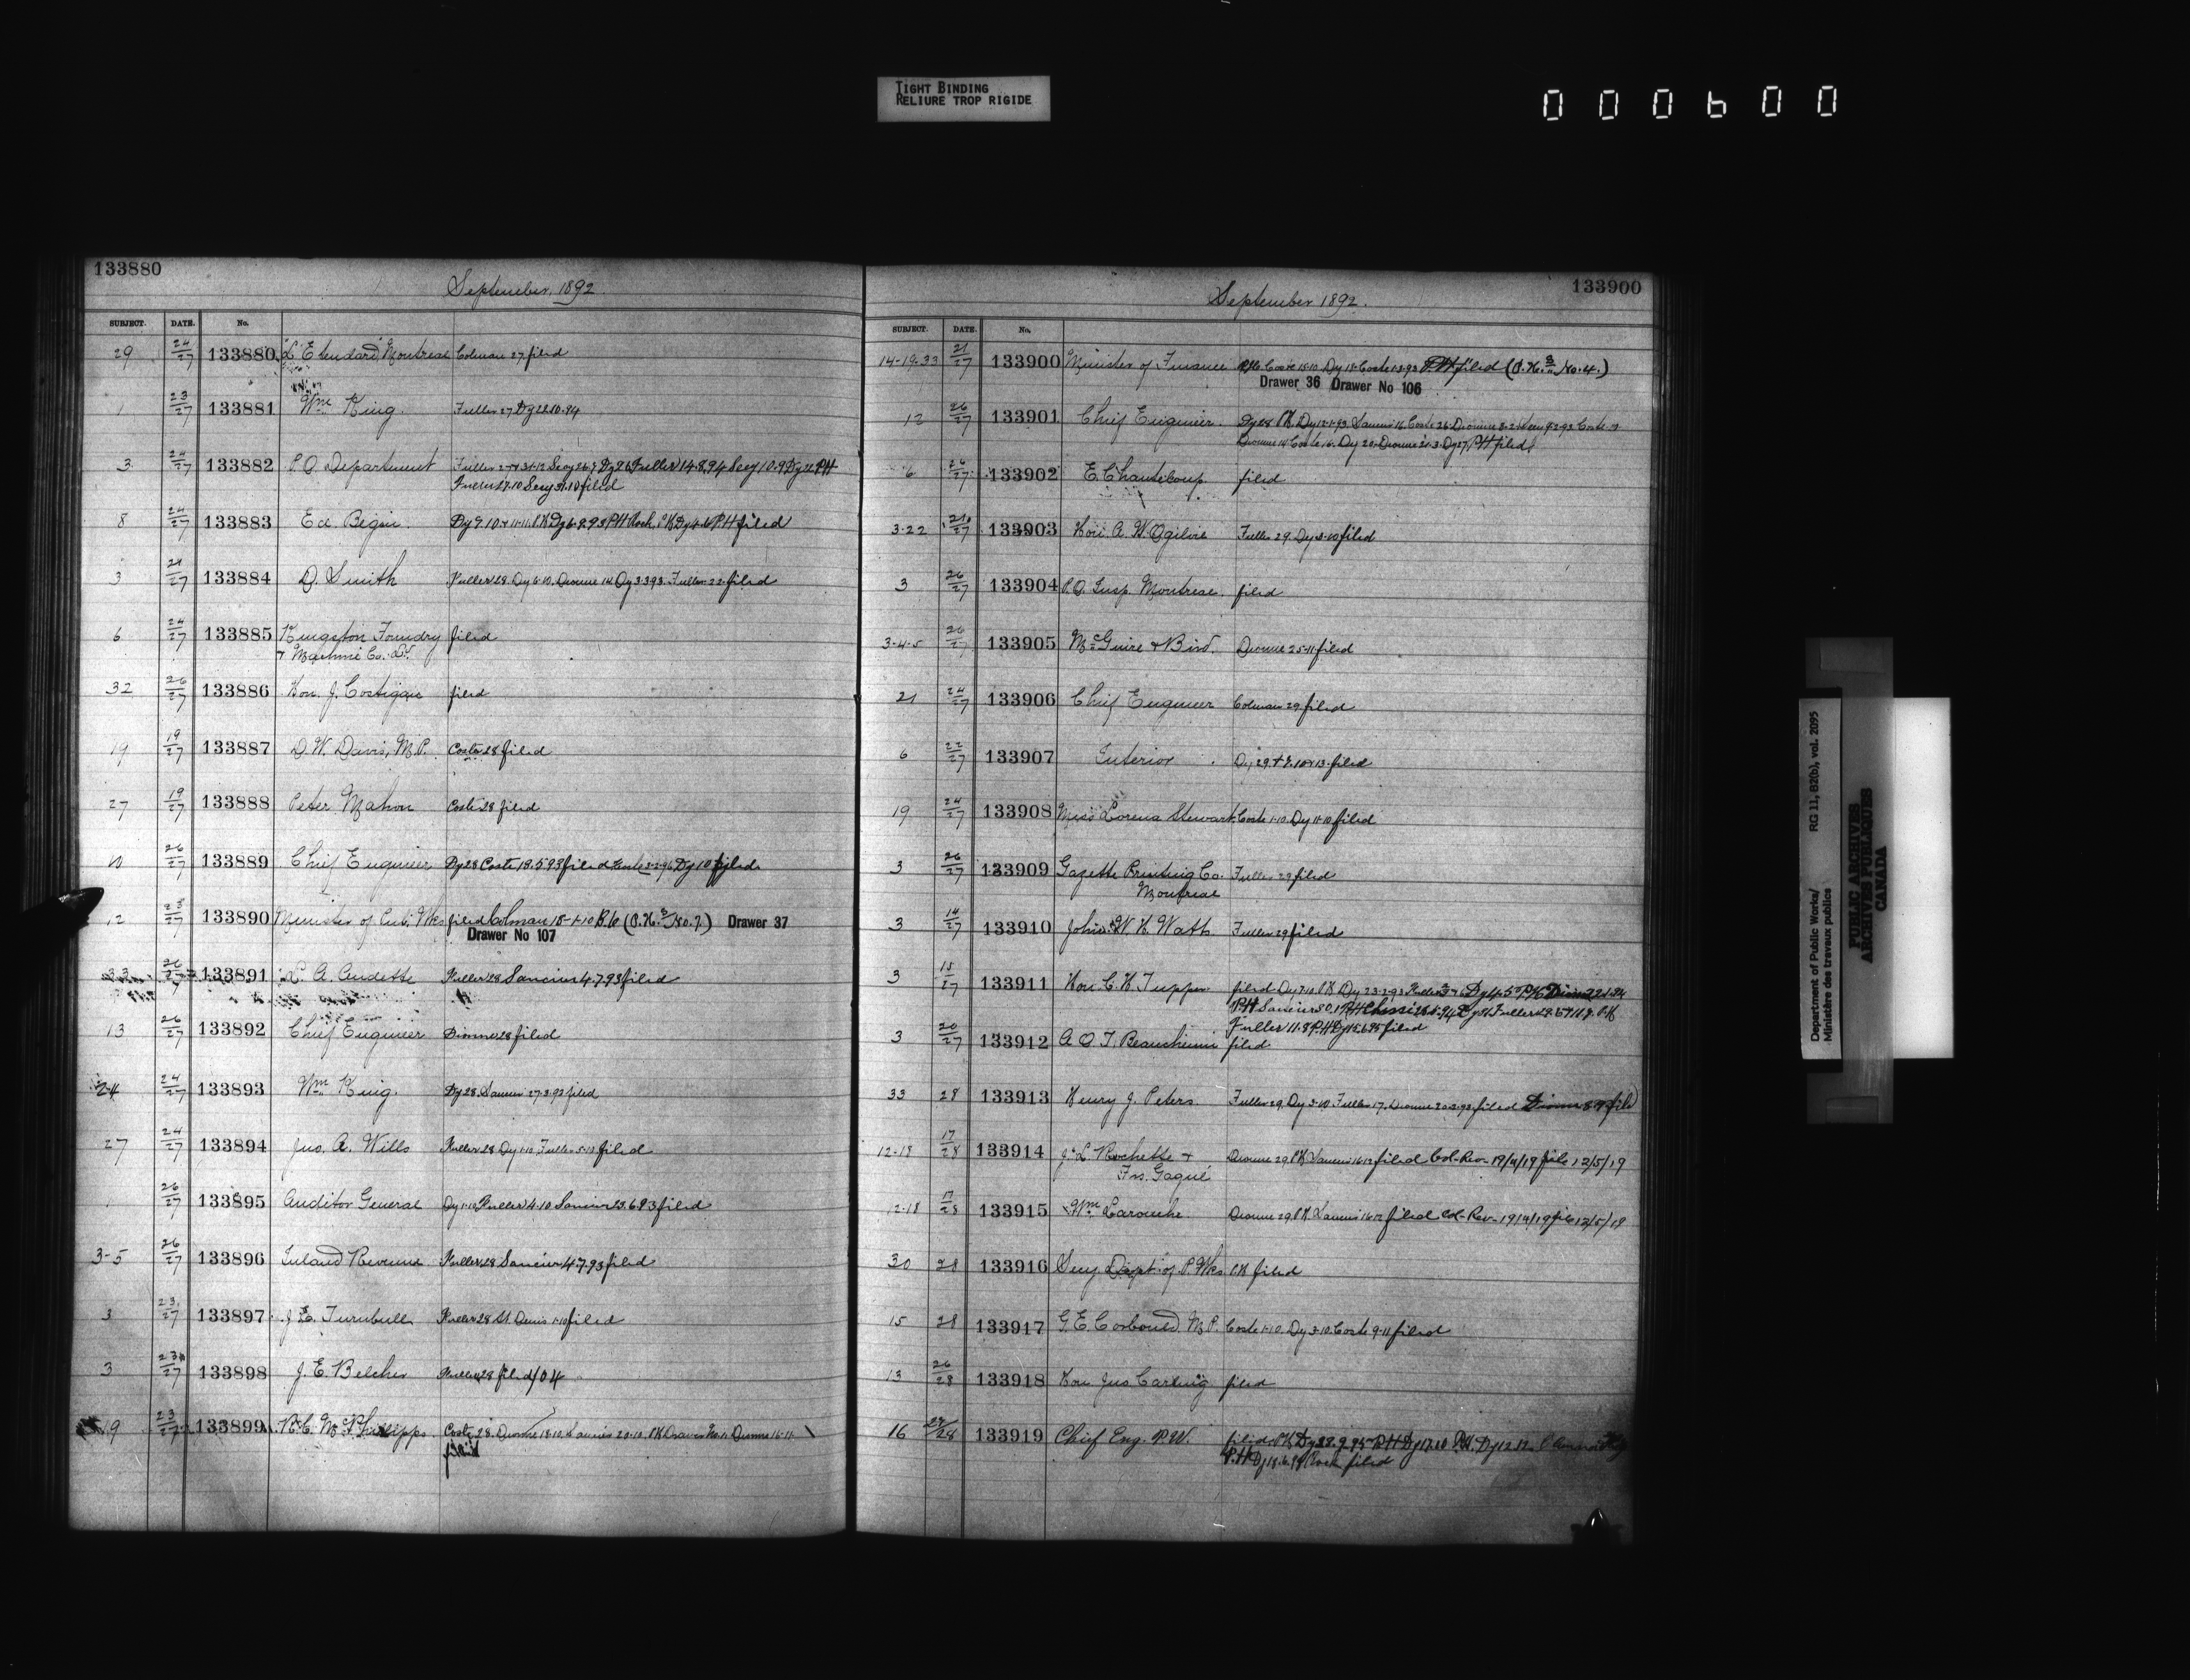 TIGHT BINDING
RELIURE TROP RIGIDE
000600
133880
September, 1892
SUBJECT. DATE. No.
29 24/27 133880 "L'Etendard" Montreal Colman 27 filed
1 23/27 133881 Wm King. Fuller 27 Dy 22.10.94
3 24/27 133882 P.O. Department Fuller 27 31.12 Secy 26.7 Dy 26 Fuller 14.8.94 Secy 10.9 Dy 22 PH
Fuller 27.10 Secy 31.10 filed
8 24/27 133883 Ed. Begin. Dy 9.10 PH filed
3 21/27 133884 D. Smith Fuller 28. Dy 6.10. Dionne 14 Dy 3.3.93. Fuller 22. filed
6 24/27 133885 Kingston Foundry filed
+ Machine Co. Ld.
32 26/27 133886 Hon. J. Costigan filed
19 19/27 133887 D. W. Davis, M.P. Coste 28 filed
27 19/27 133888 Peter Mahon Coste 28 filed
10 26/27 133889 Chief Engineer Dy 28 Coste 18.5.93 filed Coste 3-2-96 Dy 10 filed
12 23/27 133890 Minister of Pub. Wks filed Colman 15-1-10 (O.H. No. 7.) Drawer 37
Drawer No 107
26/27 133891 L. A. Audette Fuller 28 Saucier 4.7.93 filed
13 26/27 133892 Chief Engineer Dionne 28 filed
24 24/27 133893 Wm King. Dy 28. Saucier 27.3.93 filed
27 24/27 133894 Jno. A. Wills Fuller 28 Dy 1.10. Fuller 5.10 filed
1 26/27 133895 Auditor General Dy 1.10 Fuller 4.10 Saucier 23.6.93 filed
3-5 26/27 133896 Inland Revenue Fuller 28 Saucier 4.7.93 filed
3 23/27 133897 J. E. Turnbull Fuller 28 St. Denis 1.10 filed
3 23/27 133898 J. E. Belcher Fuller 28 filed/04
19 23/27 133899 Coste 28. Dionne 18.10. Saucier 20.10. PH Dionne 16.11
filed
133900
September 1892.
SUBJECT. DATE. No.
14-19-33 21/27 133900 Minister of Finance Coste 15.10. Dy 18. Coste 1.3.93 P.H. filed (O.H. No. 4.)
Drawer 36 Drawer No 106
12 26/27 133901 Chief Engineer. Dy 28 PH Dy 12.1.93. Saucier 16. Coste 26. Dionne 8.2. Secy 9.2.93 Coste
Dionne 14 Coste 16. Dy 20. Dionne 21.3. Dy 27. PH filed
6 26/27 133902 E. Chanteloup filed
3-22 21/27 133903 Hon. A. W. Ogilvie Fuller 29. Dy 3.10 filed
3 26/27 133904 P.O. Insp. Montreal. filed
3-4-5 26/27 133905 McGuire & Bird. Dionne 25.11 filed
21 24/27 133906 Chief Engineer Colman 29 filed
6 22/27 133907 Interior filed
19 24/27 133908 Miss Lorena Stewart. Coste 1.10. Dy 11.10 filed
3 26/27 133909 Gazette Printing Co. Fuller 29 filed
Montreal
3 14/27 133910 John W. H. Watts Fuller 29 filed
3 15/27 133911 Hon. C. H. Tupper filed Dy 7.10. PH Dy 23.2.93
Fuller 11.9 PH Dy filed
3 20/27 133912 A. O. T. Beauchemin filed
33 28 133913 Henry J. Peters Fuller 29. Dy 3.10 Fuller 17. Dionne 20.3.93 filed
12-18 17/28 133914 J. L. Rochette + Dionne 29. PH Saucier 16.12 filed Col-Rev- 19/4/19 file 12/5/19
Frs. Gagné
12-18 17/28 133915 Wm Larouche Dionne 29. PH Saucier 16.12 filed Col-Rev- 19/4/19 file 12/5/19
30 28 133916 Secy Dept. of P. Wks. PH filed
15 28 133917 G. E. Corbould. M.P. Coste 1.10. Dy 3.10. Coste 9.11 filed
13 26/28 133918 Hon Jno Carling filed
16 27/28 133919 Chief Eng. P.W. filed. PH Dy 28.9.95 PH Dy 17.10 PH. Dy 12.12
P.H. Dy filed
Department of Public Works/
Ministère des travaux publics
RG 11, B2(b), vol. 2095
PUBLIC ARCHIVES
ARCHIVES PUBLIQUES
CANADA